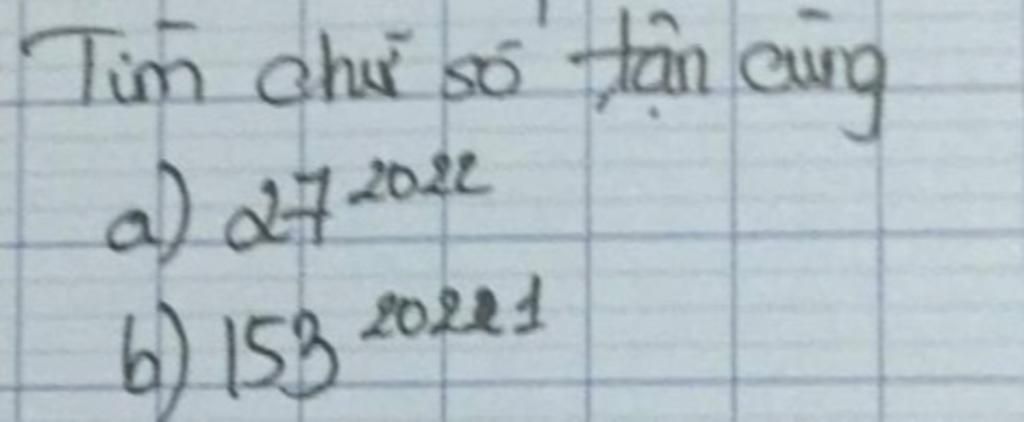 Tìm chữ số tận cùng
a) 27^2022
b) 153^20221